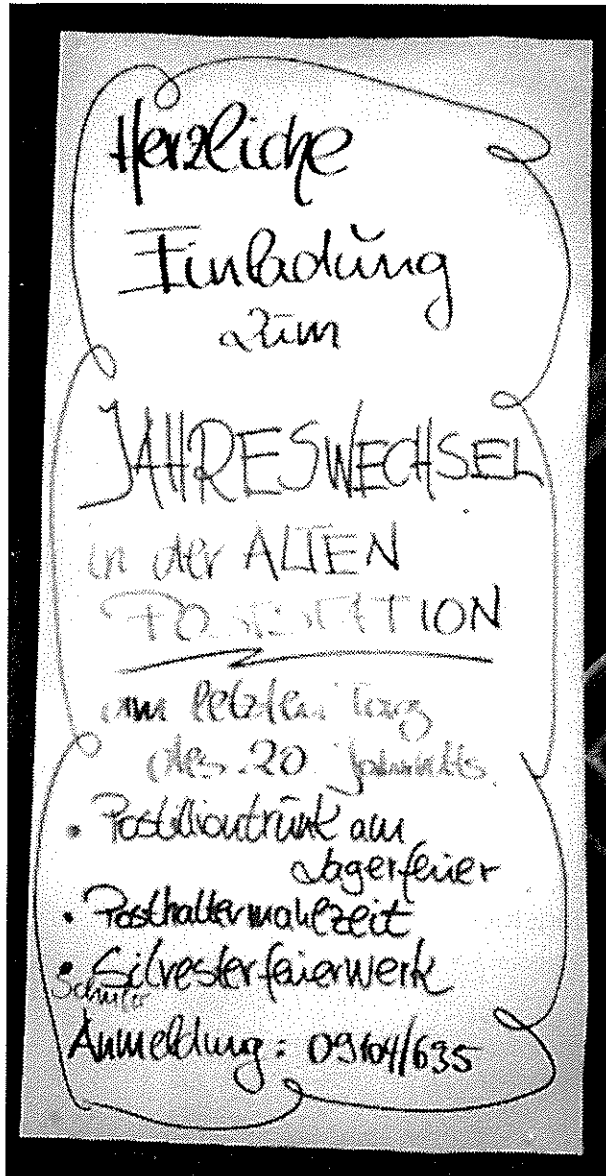 Herzliche
Einladung
zum
JAHRESWECHSEL
in der ALTEN
POSTSTATION
am letzten Tag
des 20. Jahrhdts.
• Postilliontrunk am
Lagerfeuer
• Posthaltermahlzeit
• Silvesterfeuerwerk
Schuler
Anmeldung: 09104/635